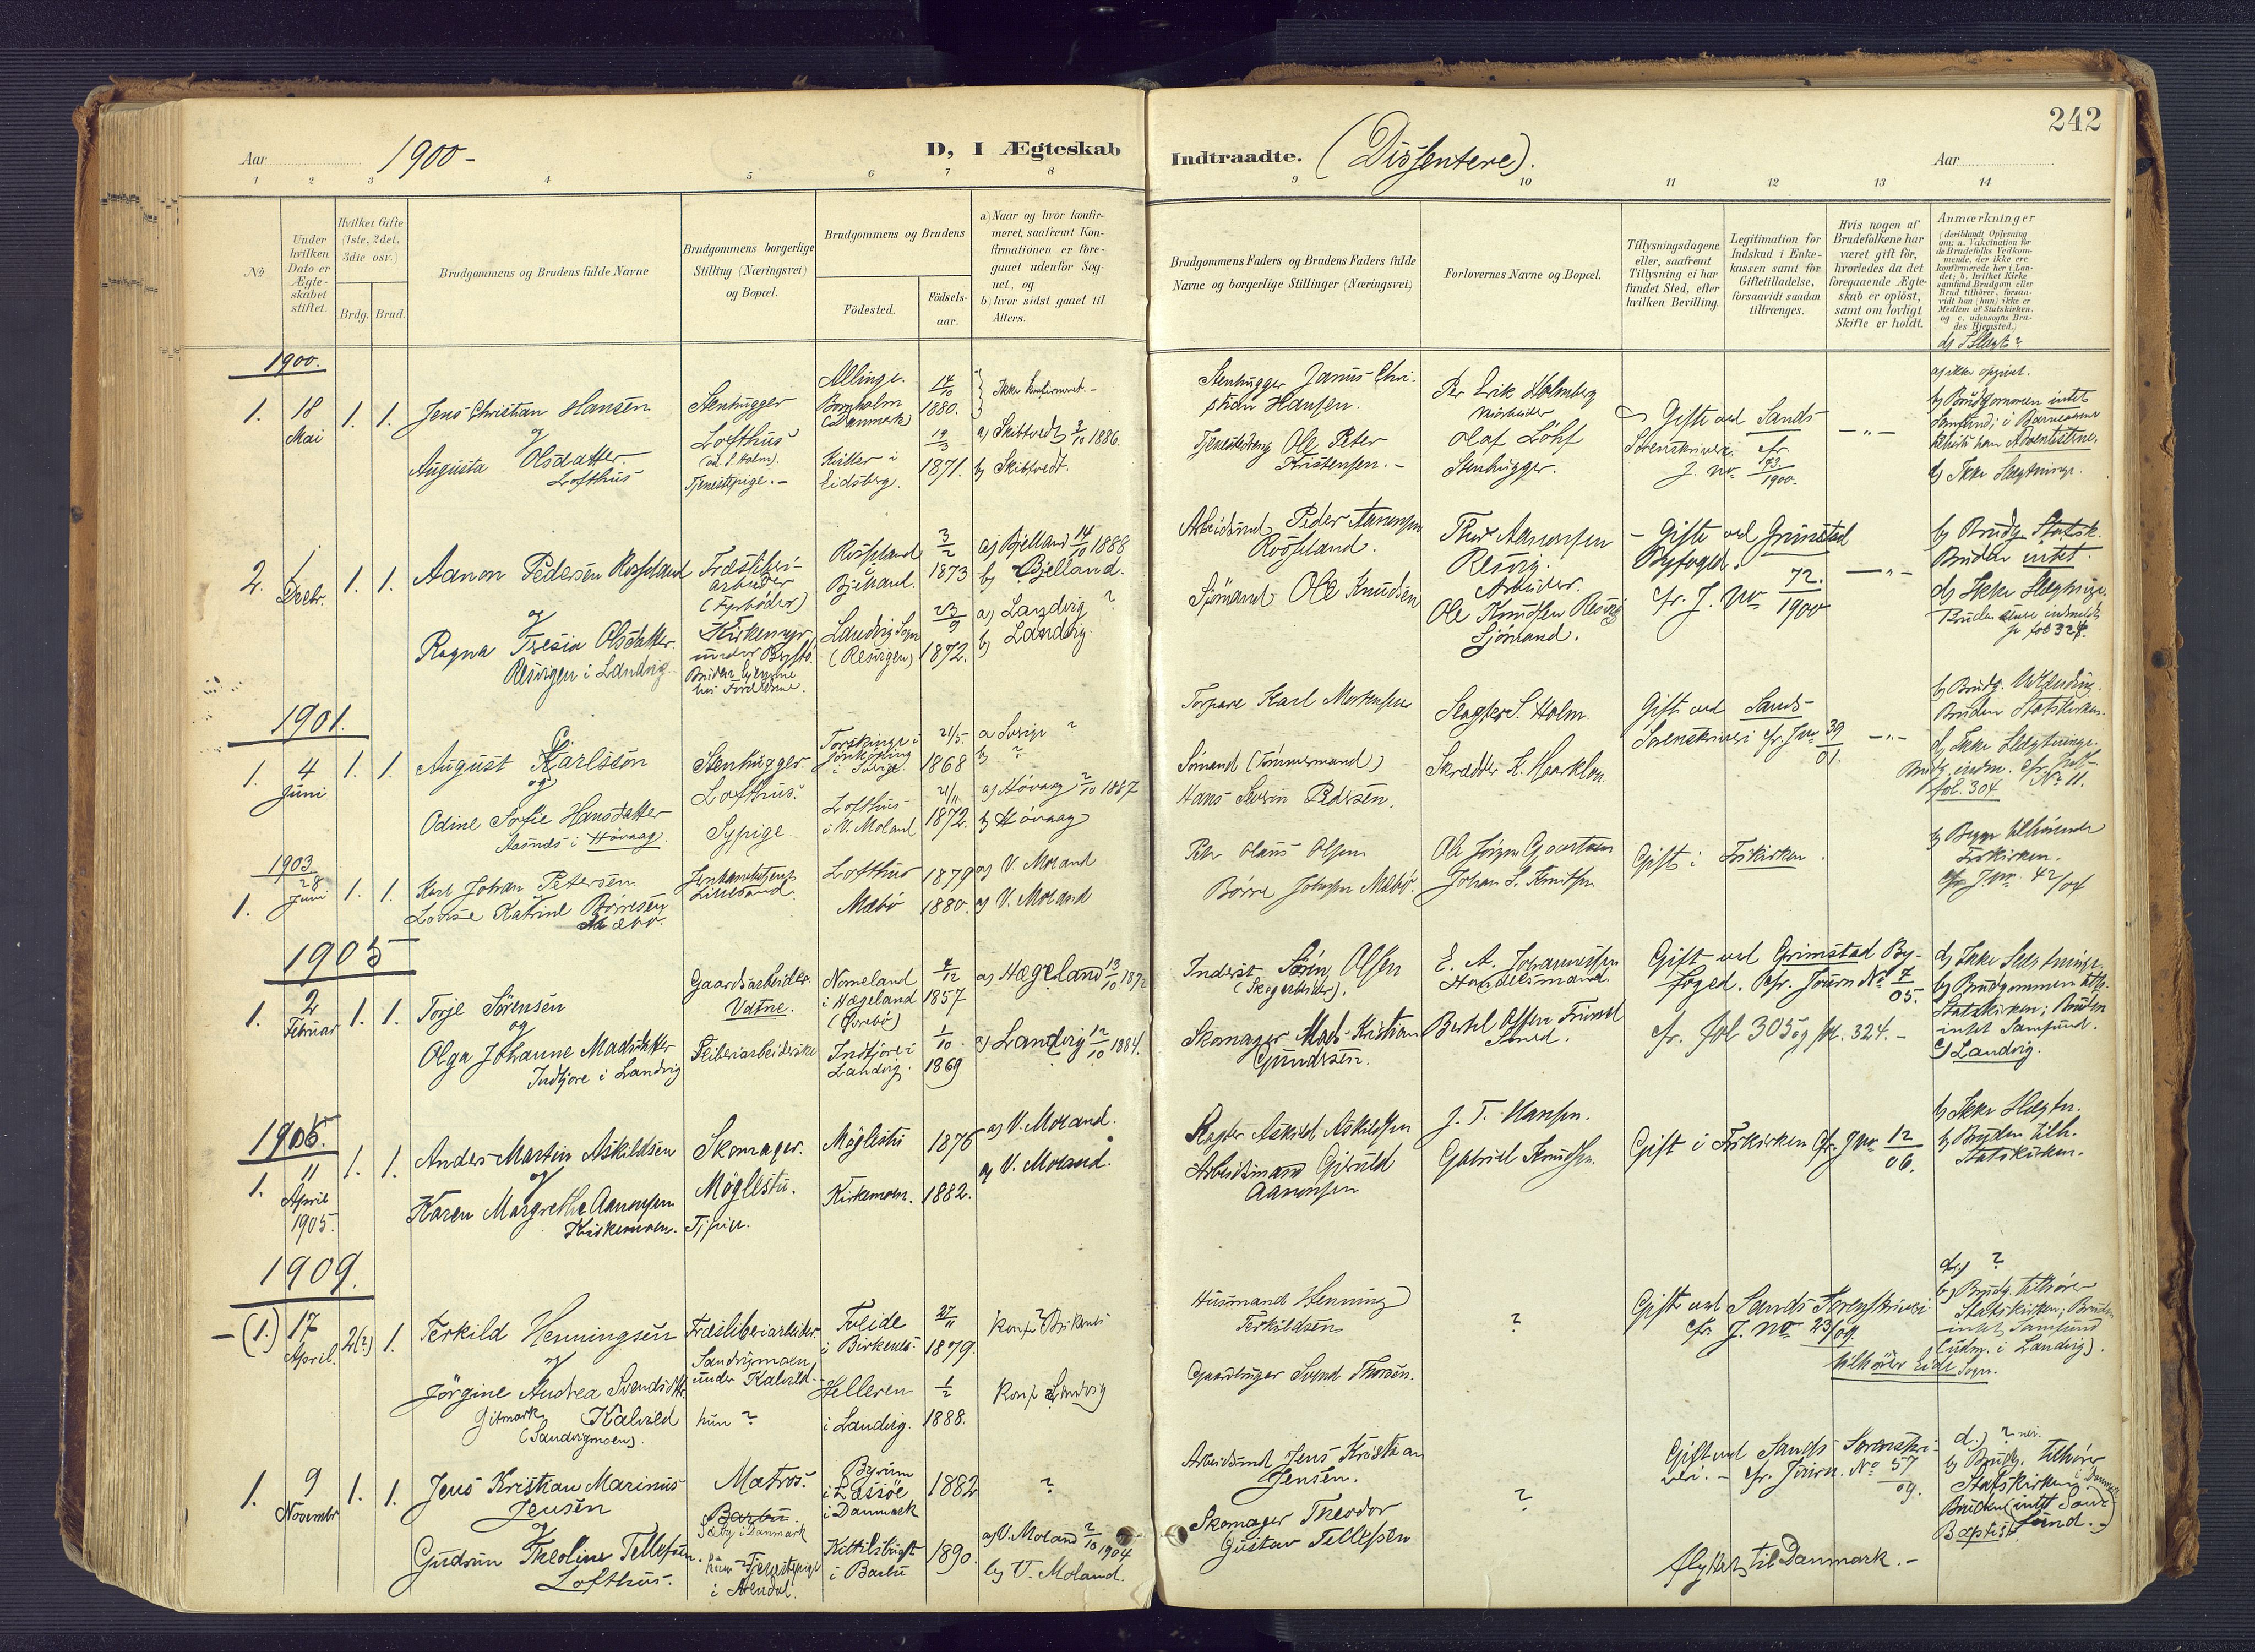 242
Aar 1900-
D, I Ægteskab
Indtraadte. (Dissentere).
Aar
1 2 3 4 5 6 7 8 9 10 11 12 13 14
No
Under hvilken Dato er Ægteskabet stiftet.
Hvilket Gifte (1ste, 2det, 3die osv.)
Brdg. Brud.
Brudgommens og Brudens fulde Navne
Brudgommens borgerlige Stilling (Næringsvei) og Bopæl.
Brudgommens og Brudens
Födested.
Födsels-aar.
a) Naar og hvor konfirmeret, saafremt Konfirmationen er foregaaet udenfor Sognet, og
b) hvor sidst gaaet til Alters.
Brudgommens Faders og Brudens Faders fulde Navne og borgerlige Stillinger (Næringsvei)
Forlovernes Navne og Bopæl.
Tillysningsdagene eller, saafremt Tillysning ei har fundet Sted, efter hvilken Bevilling.
Legitimation for Indskud i Enkekassen samt for Giftetilladelse, forsaavidt saadan tiltrænges.
Hvis nogen af Brudefolkene har været gift för, hvorledes da det foregaaende Ægteskab er oplöst, samt om lovligt Skifte er holdt.
Anmærkninger
(deriblandt Oplysning om: a. Vakcination for de Brudefolks Vedkommende, der ikke ere konfirmerede her i Landet; b. hvilket Kirkesamfund Brudgom eller Brud tilhører, forsaavidt han (hun) ikke er Medlem af Statskirken, og c. udensogns Brudes Hjemsted.)
d) Slegt?
1900.
1. 18 Mai 1. 1.
Jens Christian Hansen
og
Augusta Olsdatter
Lofthus
Stenhugger
Lofthus
(ad. S. Holm).
Tjenestepige.-
Allinge.
Bornholm
(Danmark)
14/10 1880.
19/3 1871.
Eidsberg.
Ikke konfirmeret.-
a) Skibtvedt 3/10 1886.
b) Skibtvedt.
Stenhugger Janus Christian Hansen.
Ole Peter Kristensen.-
Per Erik Holmberg
Olaf Löhf
Stenhugger.
Gifte ved Sands
Sorenskriveri. cfr.
J. No 193/1900.
- " -
b) Brudgommen intet
Samfund; i Barneaarene
han Adventistene.
d) Ikke Slægtninge.
2. 1 Decbr. 1. 1.
Aanon Pedersen Rosseland
og
Ragna Tresia Olsdatter
Resvigen i Landvig.-
Træsliberi-
arbeider
(Fyrböder)
Kirkemyr
Rosseland
i
Bjelland.
Landvig Sogn
(Resvigen)
3/2 1873
23/9 1872.
a) Bjelland 14/10 1888
b) Bjelland.
a) Landvig ?
b) Landvig.
Arbeidsmd Peder Aanonsen
Rosseland.
Sjömand Ole Knudsen
Thor Aanonsen
Resvig.
Arbeider.
Ole Knudsen Resvig
Sjömand.
- Gifte ved Grimstad
Byfoged.
cfr. J. No 72./1900
- " -
b) Brudg. Statsk.
Bruden intet.
d) Ikke Slægtninge.
fol 324.
1901.
1. 4 Juni 1. 1.
August Karlsson
og
Odine Sofie Hansdatter
Aasnæs i Hövaag.
Stenhugger
Lofthus.
Sypige.
Torskinge i
Jönköping
i Sverige.
Lofthus
i V. Moland
21/5. 1868
21/11 1872.
a Sverige ?
b ?
a) Hövaag 2/10 1887
b) Hövaag
Torpare Karl Mortensen
Sömand (Tömmermand)
Hans Severin Pedersen.
Slagter S. Holm.
Skrædder K. Haarklou.
Gift ved Sands
Sorenskriveri cfr. J no 39/01.
- " -
b) Brudg. Udlænding.
Bruden Statskirken.
d) Ikke Slægtninge.
fol. 304. No 11.
1903
1. 28 Juni 1. 1.
Karl Johan Petersen
og
Lovise Katrine Börresen
Mæbö.
Lillesand.
Lofthus
Mæbö
1879
1880.
a) V. Moland
a) V. Moland
Peter Olaus Olsen
Börre Johnsen Mæbö.
Ole Jörgen Gjeertsen
Johan S. Knutsen.
Gift i Frikirken.
b) Begge tilhörende
Frikirken.
cfr J.no. 42/04
1905
1. 2 Februar 1. 1.
Torje Sörensen
og
Olga Johanne Madsdatter
Indtjore i Landvig
Gaardsarbeider.
Vatne.
Sliberiarbeiderske
Nomeland
i Hægeland
(Övrebö)
Indtjore i
Landvig.
4/12 1857
1/10 1869
a) Hægeland 13/10 1872
a) Landvig 12/10 1884.
Inderst Sörin Olsen
(Skogarbeider).
Skomager Mads Kristian
Gundersen.
E. A. Johannessen
Handelsmand.
Bertel Olsen
Smed.
Gift ved Grimstad By-
foged. Cfr. Journ No. 7/05.
cfr. fol 305 og fol. 324.-
d) Ikke Slægtninge.
b) Brudgommen tilh.
Statskirken; Bruden
intet Samfund.
c) Landvig.
1905.
1. 11 April 1905. 1. 1.
Anders Martin Askildsen
og
Karen Margrethe Aanonsen
Kirkemoen.
Skomager.
Möglestu.
Möglestu
Kirkemoen.
1876
1882.
a) V. Moland.
a) V. Moland.
Askild Askildsen
Arbeidsmand Gjeruld
Aanonsen
J. T. Hansen.
Gabriel Knudsen.
Gift i Frikirken cfr. J no 12/06.
b) Ikke Slægtn.
b) Bruden tilh.
Statskirken.
1909.
-(1.) 17 April. 2(?) 1.
Terkild Henningsen
og
Jörgine Andrea Svendsdtr
Gitmark Kalvild
(Sandvigmoen).
Træsliberiarbeider.
Sandvigmoen
under Kalvild.-
hun ?
Tveide
i Birkenes.
Helleren
i Landvig.
27/11 1879.
1/2 1888.
Konf. ? Birkenes
Konf. Landvig
Husmand Henning
Terkildsen
Gaardbruger Svend Thorsen.
?
Gift ved Sands Sorenskriveri
cfr. J. No 23/09.
tilhörer Eide Sogn.
d) ?
b) Brudg. tilhörer
Statskirken; Bruden
intet Samfund
(udm. i Landvig).
1. 9 Novembr 1. 1.
Jens Kristian Marinus
Jensen
og
Gudrun Theoline Tellefsen.
Lofthus.
Matros.
Barbu.
Sæby i Danmark
hun - Tjenestepige
i Arendal.
Byrum
i Læssöe
i Danmark
Kittilsbugt
i Barbu
1882
1890.
?
a) V. Moland 2/10 1904
b) V. Moland.
Arbeidsmd Jens Kristian
Jensen.
Skomager Theodor
Gustav Tellefsen
?
Gift ved Sands Sorenskri-
veri. - cfr. Journ. No 57/09.
flyttet til Danmark.-
d.) ? nei.
b) Brudg. tilhörer
Statskirken i Danmark
Bruden (intet Sam-
fund.-)
Baptist